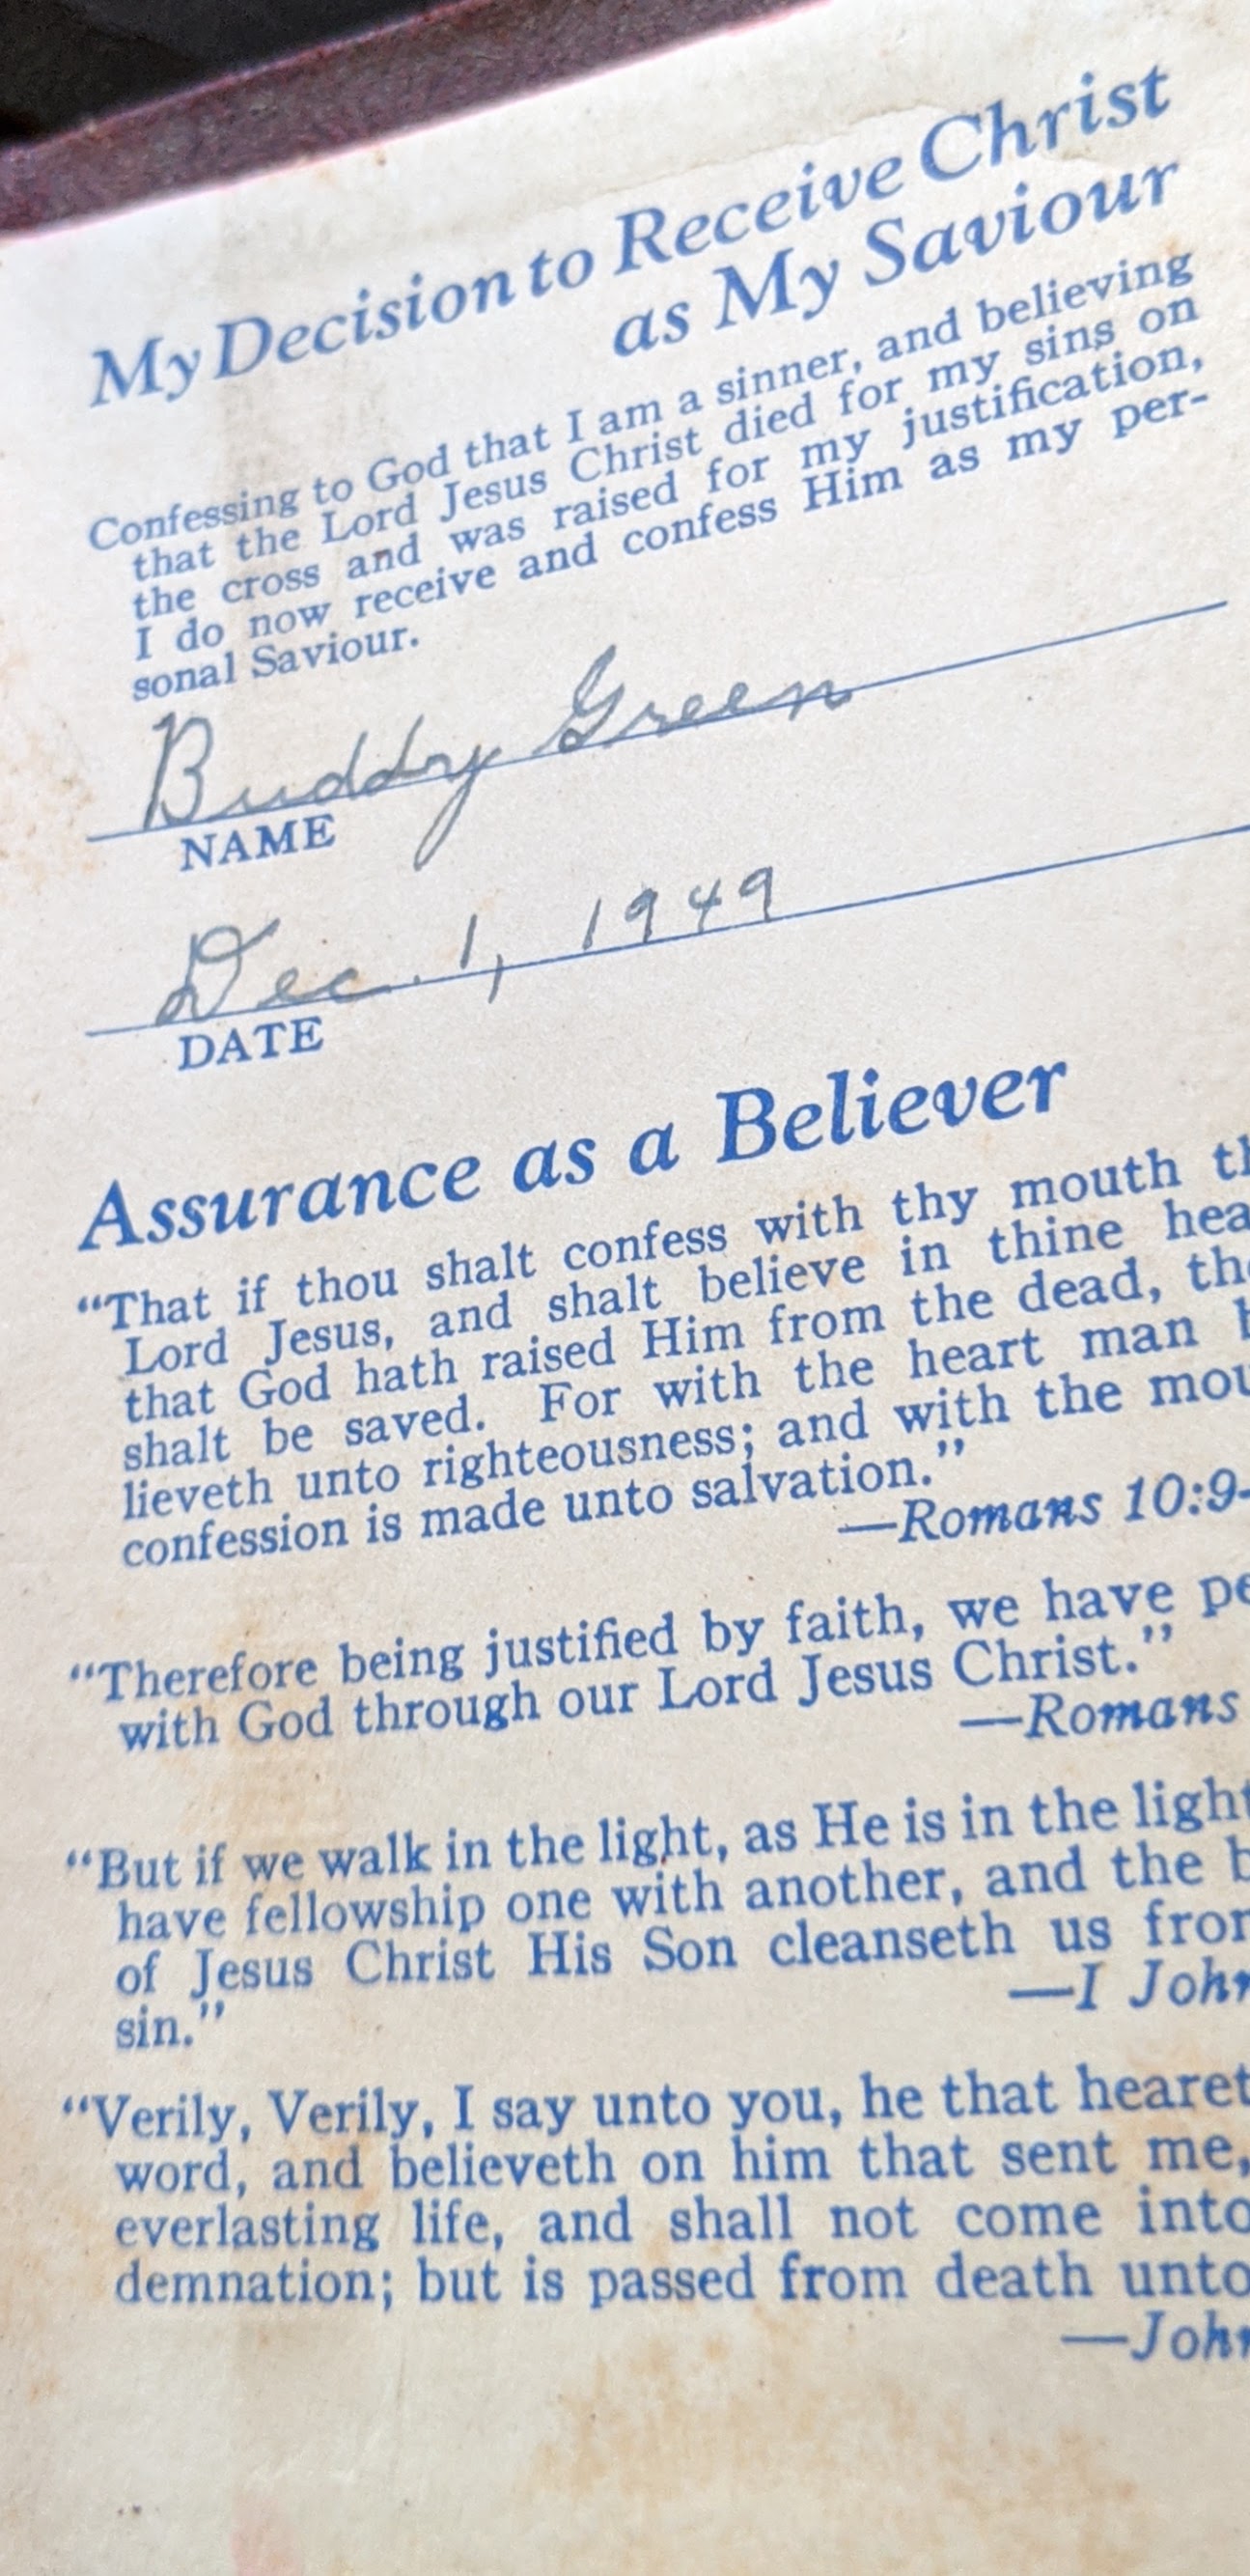 My Decision to Receive Christ
as My Saviour
Confessing to God that I am a sinner, and believing
that the Lord Jesus Christ died for my sins on
the cross and was raised for my justification,
I do now receive and confess Him as my per-
sonal Saviour.
Buddy Green
NAME
Dec. 1, 1949
DATE
Assurance as a Believer
“That if thou shalt confess with thy mouth
Lord Jesus, and shalt believe in thine
that God hath raised Him from the dead,
shalt be saved. For with the heart man
lieveth unto righteousness; and with the
confession is made unto salvation.”
—Romans 10:9-
“Therefore being justified by faith, we have
with God through our Lord Jesus Christ.”
—Romans
“But if we walk in the light, as He is in the light
have fellowship one with another, and the
of Jesus Christ His Son cleanseth us
sin.”
—I John
“Verily, Verily, I say unto you, he that heareth
word, and believeth on him that sent me,
everlasting life, and shall not come into
demnation; but is passed from death unto
—John